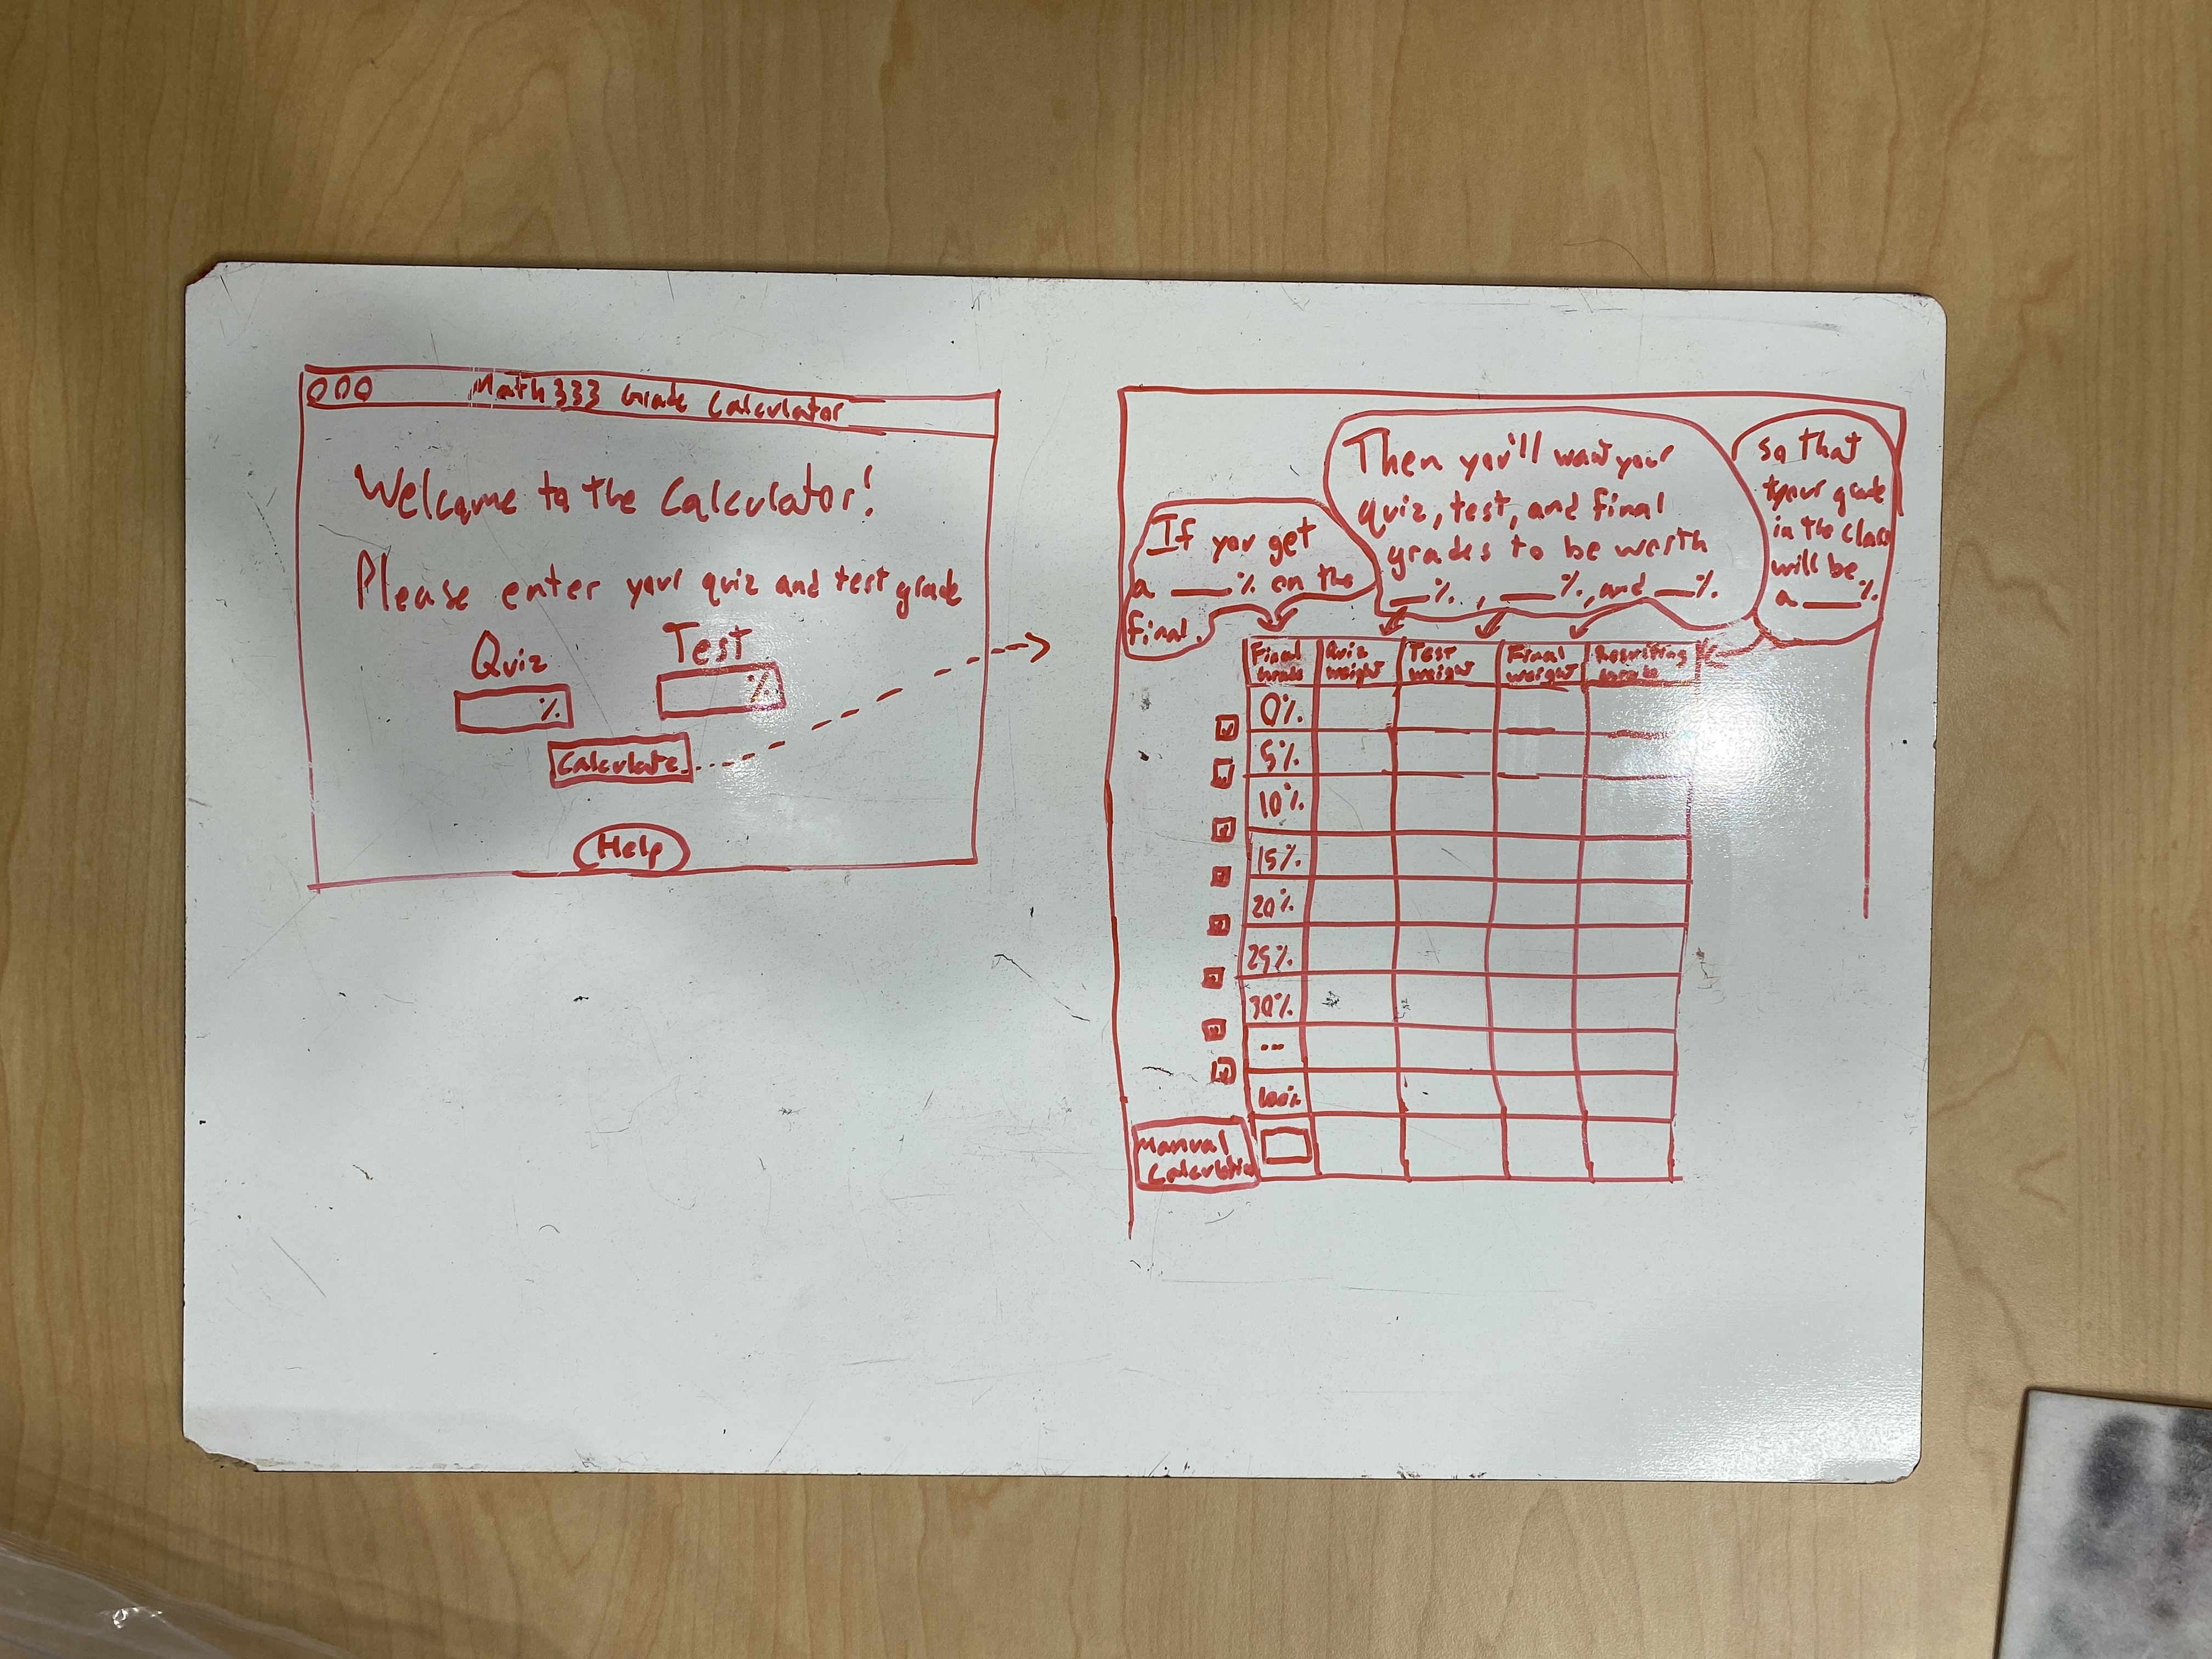 Math 333 Grade Calculator
Welcome to the Calculator!
Please enter your quiz and test grade
Quiz
Test
%
%
Calculate
Help
If you get
a ___% on the
final.
Then you'll want your
quiz, test, and final
grades to be worth
__%, ___%, and __%.
so that
your grade
in the class
will be
a ___%.
Final Grade
Quiz weight
Test weight
Final weight
Resulting Grade
0%
5%
10%
15%
20%
25%
30%
...
100%
Manual
Calculation